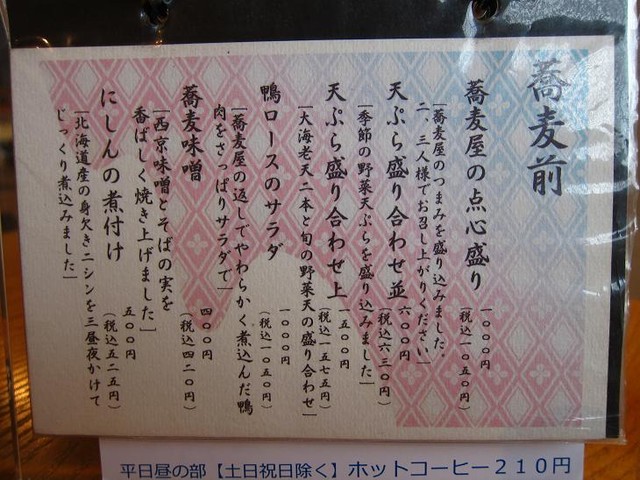 蕎麦前
蕎麦屋の点心盛り
一〇〇〇円
(税込一〇五〇円)
[蕎麦屋のつまみを盛り込みました。
二、三人様でお召し上がりください]
天ぷら盛り合わせ並
六〇〇円
(税込六三〇円)
[季節の野菜天ぷらを盛り込みました]
天ぷら盛り合わせ上
一五〇〇円
(税込一五七五円)
[大海老天二本と旬の野菜天の盛り合わせ]
鴨ロースのサラダ
一〇〇〇円
(税込一〇五〇円)
[蕎麦屋の返しでやわらかく煮込んだ鴨
肉をさっぱりサラダで]
蕎麦味噌
四〇〇円
(税込四二〇円)
[西京味噌とそばの実を
香ばしく焼き上げました]
にしんの煮付け
五〇〇円
(税込五二五円)
[北海道産の身欠きニシンを三昼夜かけて
じっくり煮込みました]
平日昼の部【土日祝日除く】ホットコーヒー210円